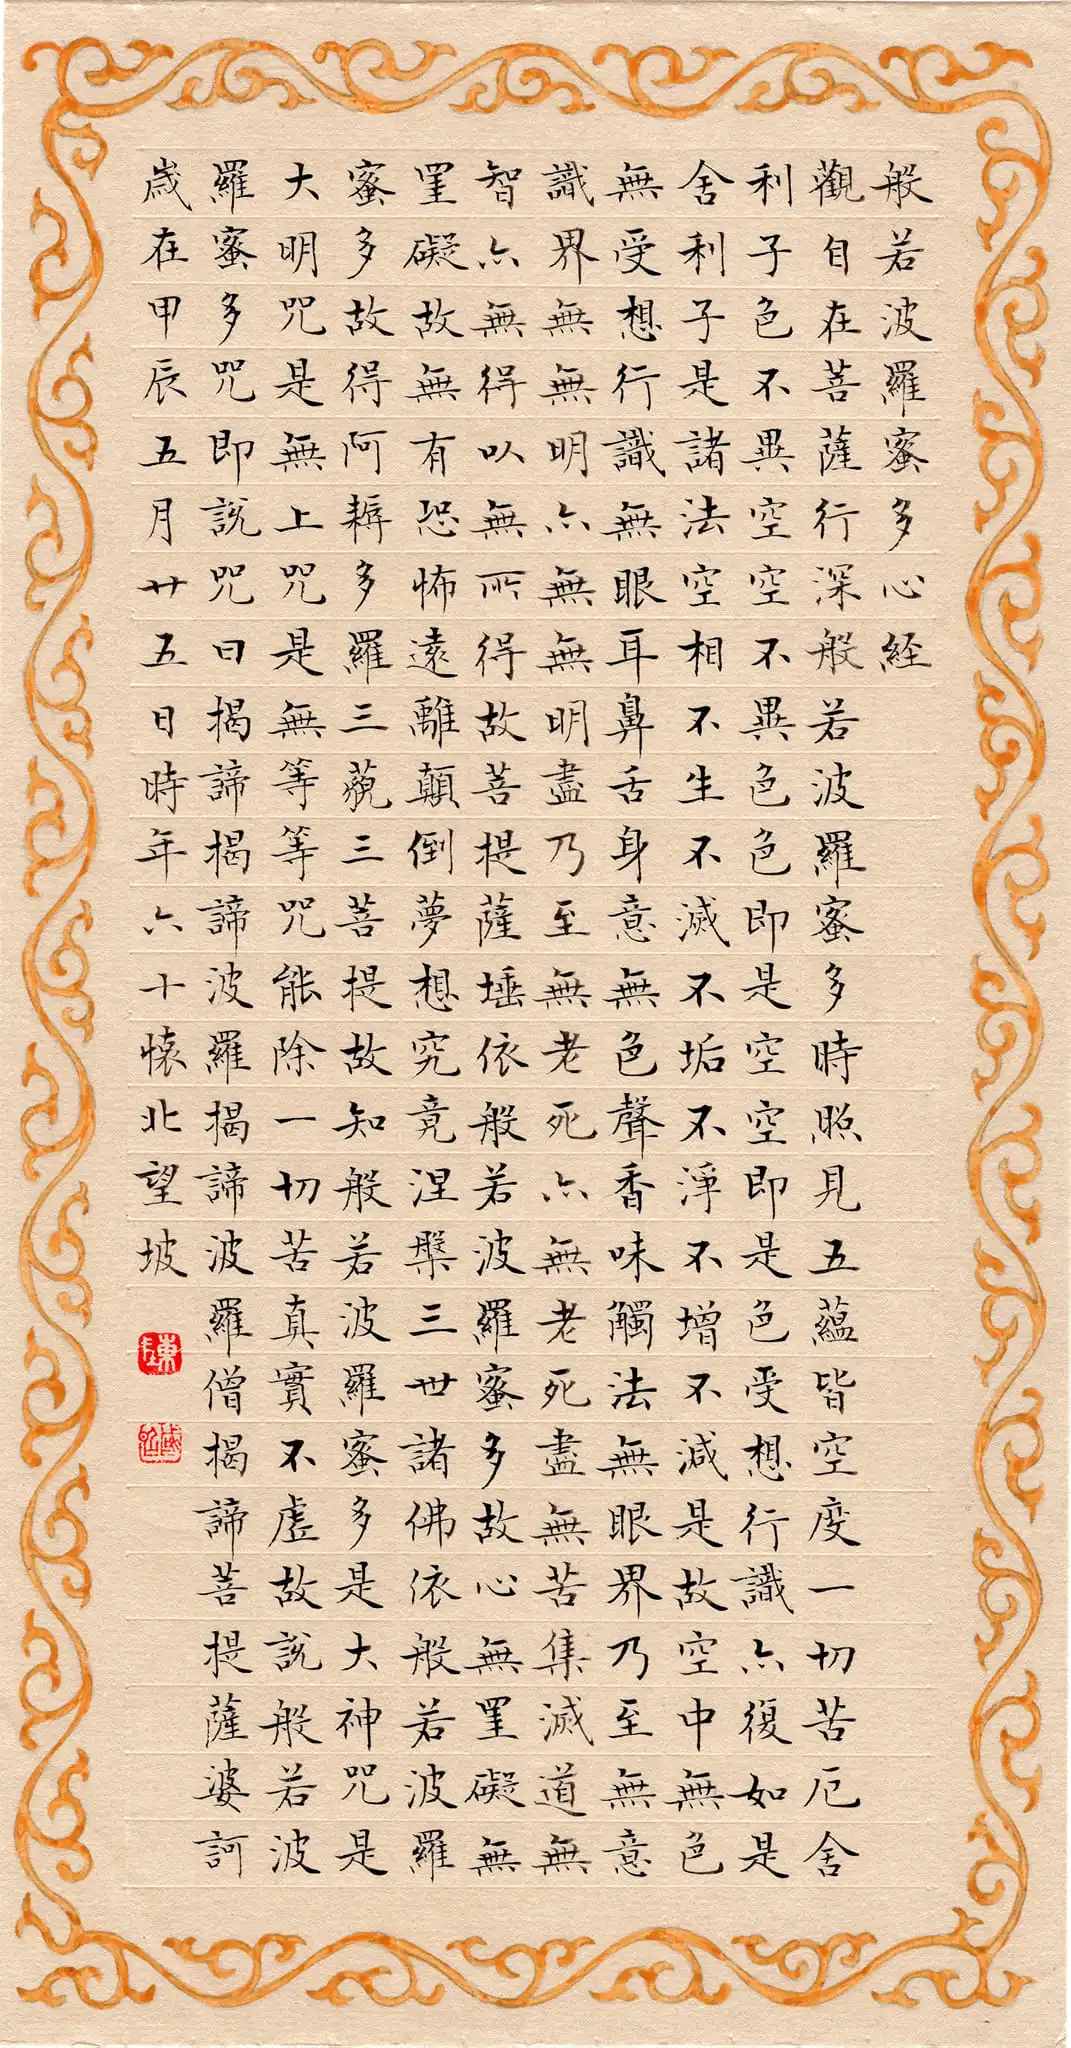 般若波羅蜜多心経
觀自在菩薩行深般若波羅蜜多時照見五蘊皆空度一切苦厄舍
利子色不異空空不異色色即是空空即是色受想行識亦復如是
舍利子是諸法空相不生不滅不垢不淨不增不減是故空中無色
無受想行識無眼耳鼻舌身意無色聲香味觸法無眼界乃至無意
識界無無明亦無無明盡乃至無老死亦無老死盡無苦集滅道無
智亦無得以無所得故菩提薩埵依般若波羅蜜多故心無罣礙無
罣礙故無有恐怖遠離顛倒夢想究竟涅槃三世諸佛依般若波羅
蜜多故得阿耨多羅三藐三菩提故知般若波羅蜜多是大神咒是
大明咒是無上咒是無等等咒能除一切苦真實不虛故說般若波
羅蜜多咒即說咒曰揭諦揭諦波羅揭諦波羅僧揭諦菩提薩婆訶
歲在甲辰五月廿五日時年六十懷北望坡